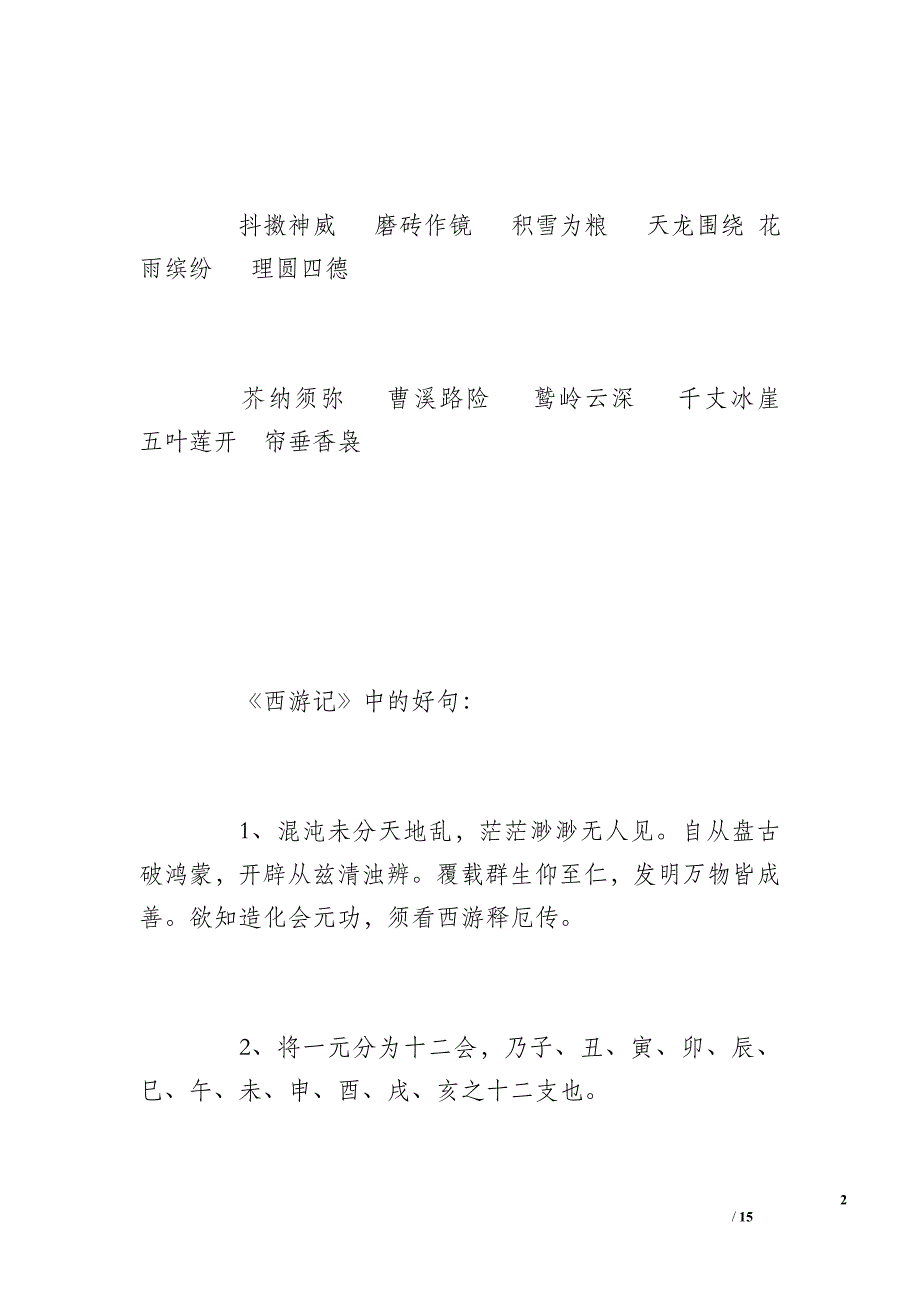 抖擞神威 磨砖作镜 积雪为粮 天龙围绕 花
雨缤纷 理圆四德
芥纳须弥 曹溪路险 鹫岭云深 千丈冰崖
五叶莲开 帘垂香袅
《西游记》中的好句：
1、混沌未分天地乱，茫茫渺渺无人见。自从盘古
破鸿蒙，开辟从兹清浊辨。覆载群生仰至仁，发明万物皆成
善。欲知造化会元功，须看西游释厄传。
2、将一元分为十二会，乃子、丑、寅、卯、辰、
巳、午、未、申、酉、戌、亥之十二支也。
2
/ 15